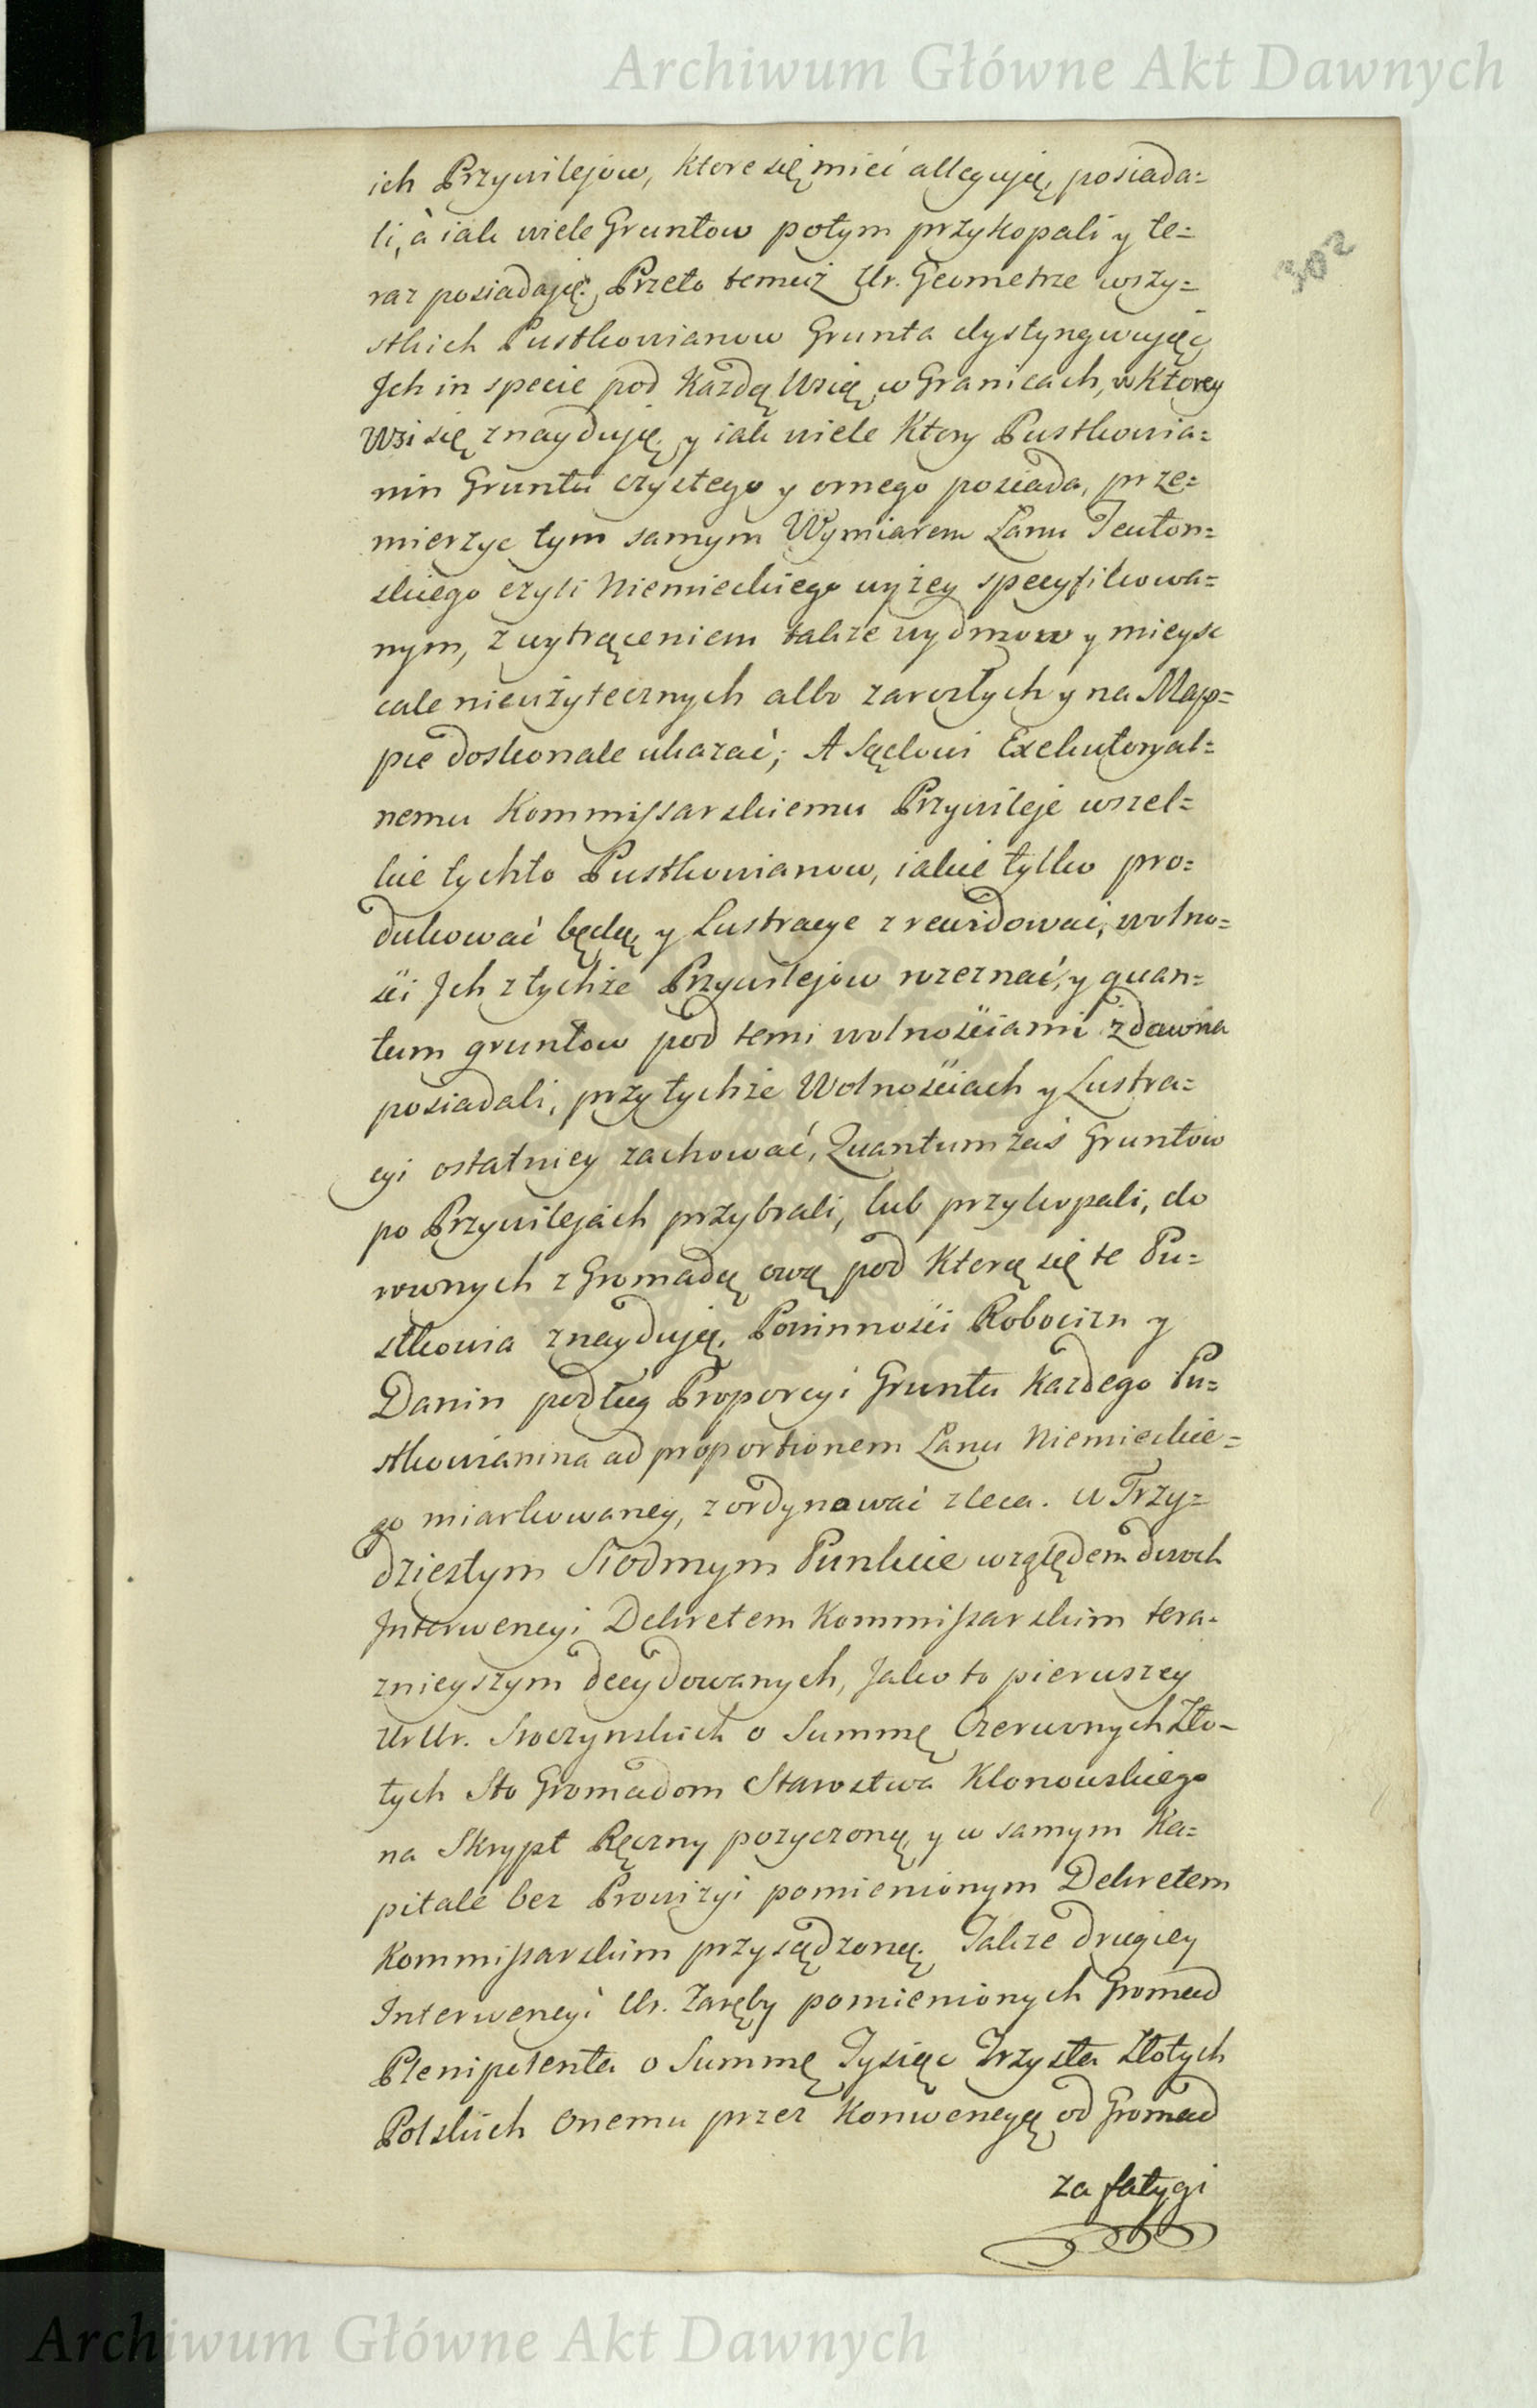 Archiwum Główne Akt Dawnych
302
ich Przywilejow, ktore się mieć alleguią, posiada=
li, à iak wiele Gruntow potym przykopali y te=
raz posiadaią. Przeto temuż Ur. Geometrze wszy=
stkich Pustkowianow Grunta dystyngwuiąc
Jch in specie pod Każdą Wsią w Granicach, w Ktorey
Wsi się znayduią, y iak wiele Ktory Pustkowia=
nin Gruntu czystego y ornego posiada, prze=
mierzyc tym samym Wymiarem Łanu Teuton=
skiego czyli Niemieckiego wyżey specyfikowa=
nym, z wytrąceniem także wydmow y mieysc
cale nieużytecznych albo zarosłych y na Map=
pie doskonale ukazać; A Sądowi Exekutoryal=
nemu Kommissarskiemu Przywileje wszel=
kie tychto Pustkowianow, iakie tylko pro=
dukować będą, y Lustracye zrewidować, wolno=
ści Jch z tychże Przywilejow wzeznać, y quan=
tum gruntow pod temi wolnościami zdawna
posiadali, przy tychże Wolnościach y Lustra=
cyi ostatniey zachować, Quantum zaś Gruntow
po Przywilejach przybrali, lub przykopali, do
rownych z Gromadą ową pod Ktorą się te Pu=
stkowia znayduią, Powinności Robocizn y
Danin podług Proporcyi Gruntu Każdego Pu=
stkowianina ad proportionem Łanu Niemieckie=
go miarkowaney, zordynować zleca. W Trzy=
dziestym Siodmym Punkcie względem dwoch
Interwencyi Dekretem Kommissarskim tera=
znieyszym decydowanych, Jako to pierwszey
Ur Ur. Skoczynskich o Summę Czerwonych Zło=
tych Sto Gromadom Starostwa Klonowskiego
na Skrypt Ręczny pozyczoną y w samym Ka=
pitale bez Prowizyi pomienionym Dekretem
Kommissarskim przysądzoną. Także drugiey
Interwencyi Ur. Zaręby pomienionych Gromad
Plenipotenta o Summę Tysiąc Trzysta Złotych
Polskich Onemu przez Konwencyą od Gromad
za fatygi
Archiwum Główne Akt Dawnych